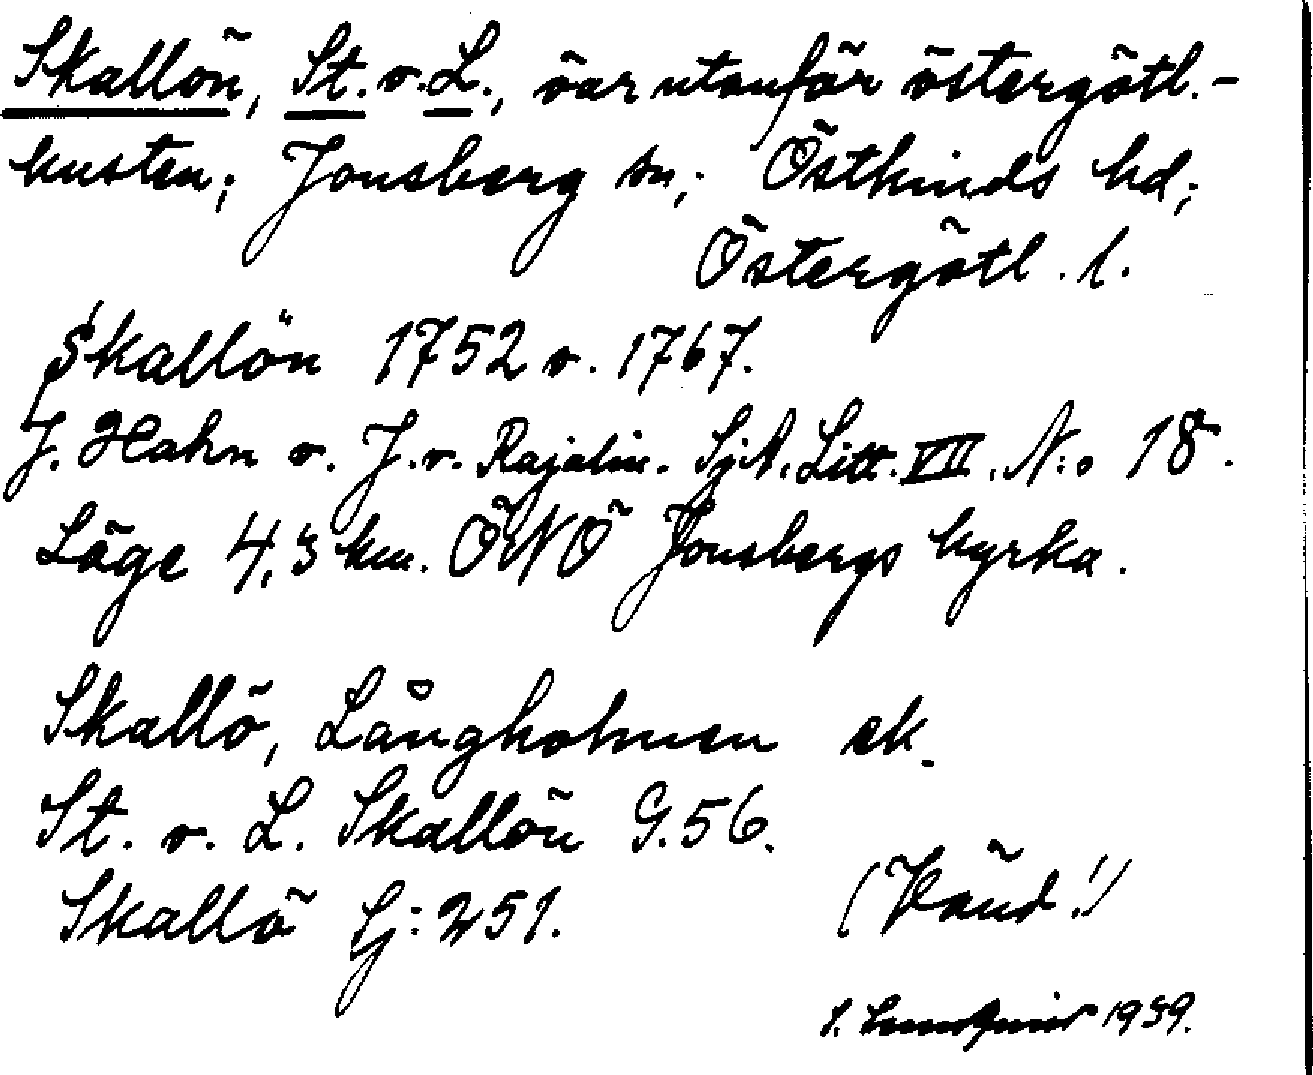 Skallön, St. o. L., öar utanför östergötl.-
kusten; Jonsberg sn; Östkinds hd;
Östergötl. l.
Skallön 1752 o. 1767.
J. Hahn o. J. v. Rajalin. Sj.A. Litt. VII. N:o 18.
Läge 4,3 km. ÖNÖ Jonsbergs kyrka.
Skallö, Långholmen ek.
St. o. L. Skallön G. 56.
Skallö Sj: 251.
(Vänd!)
S. 1939.